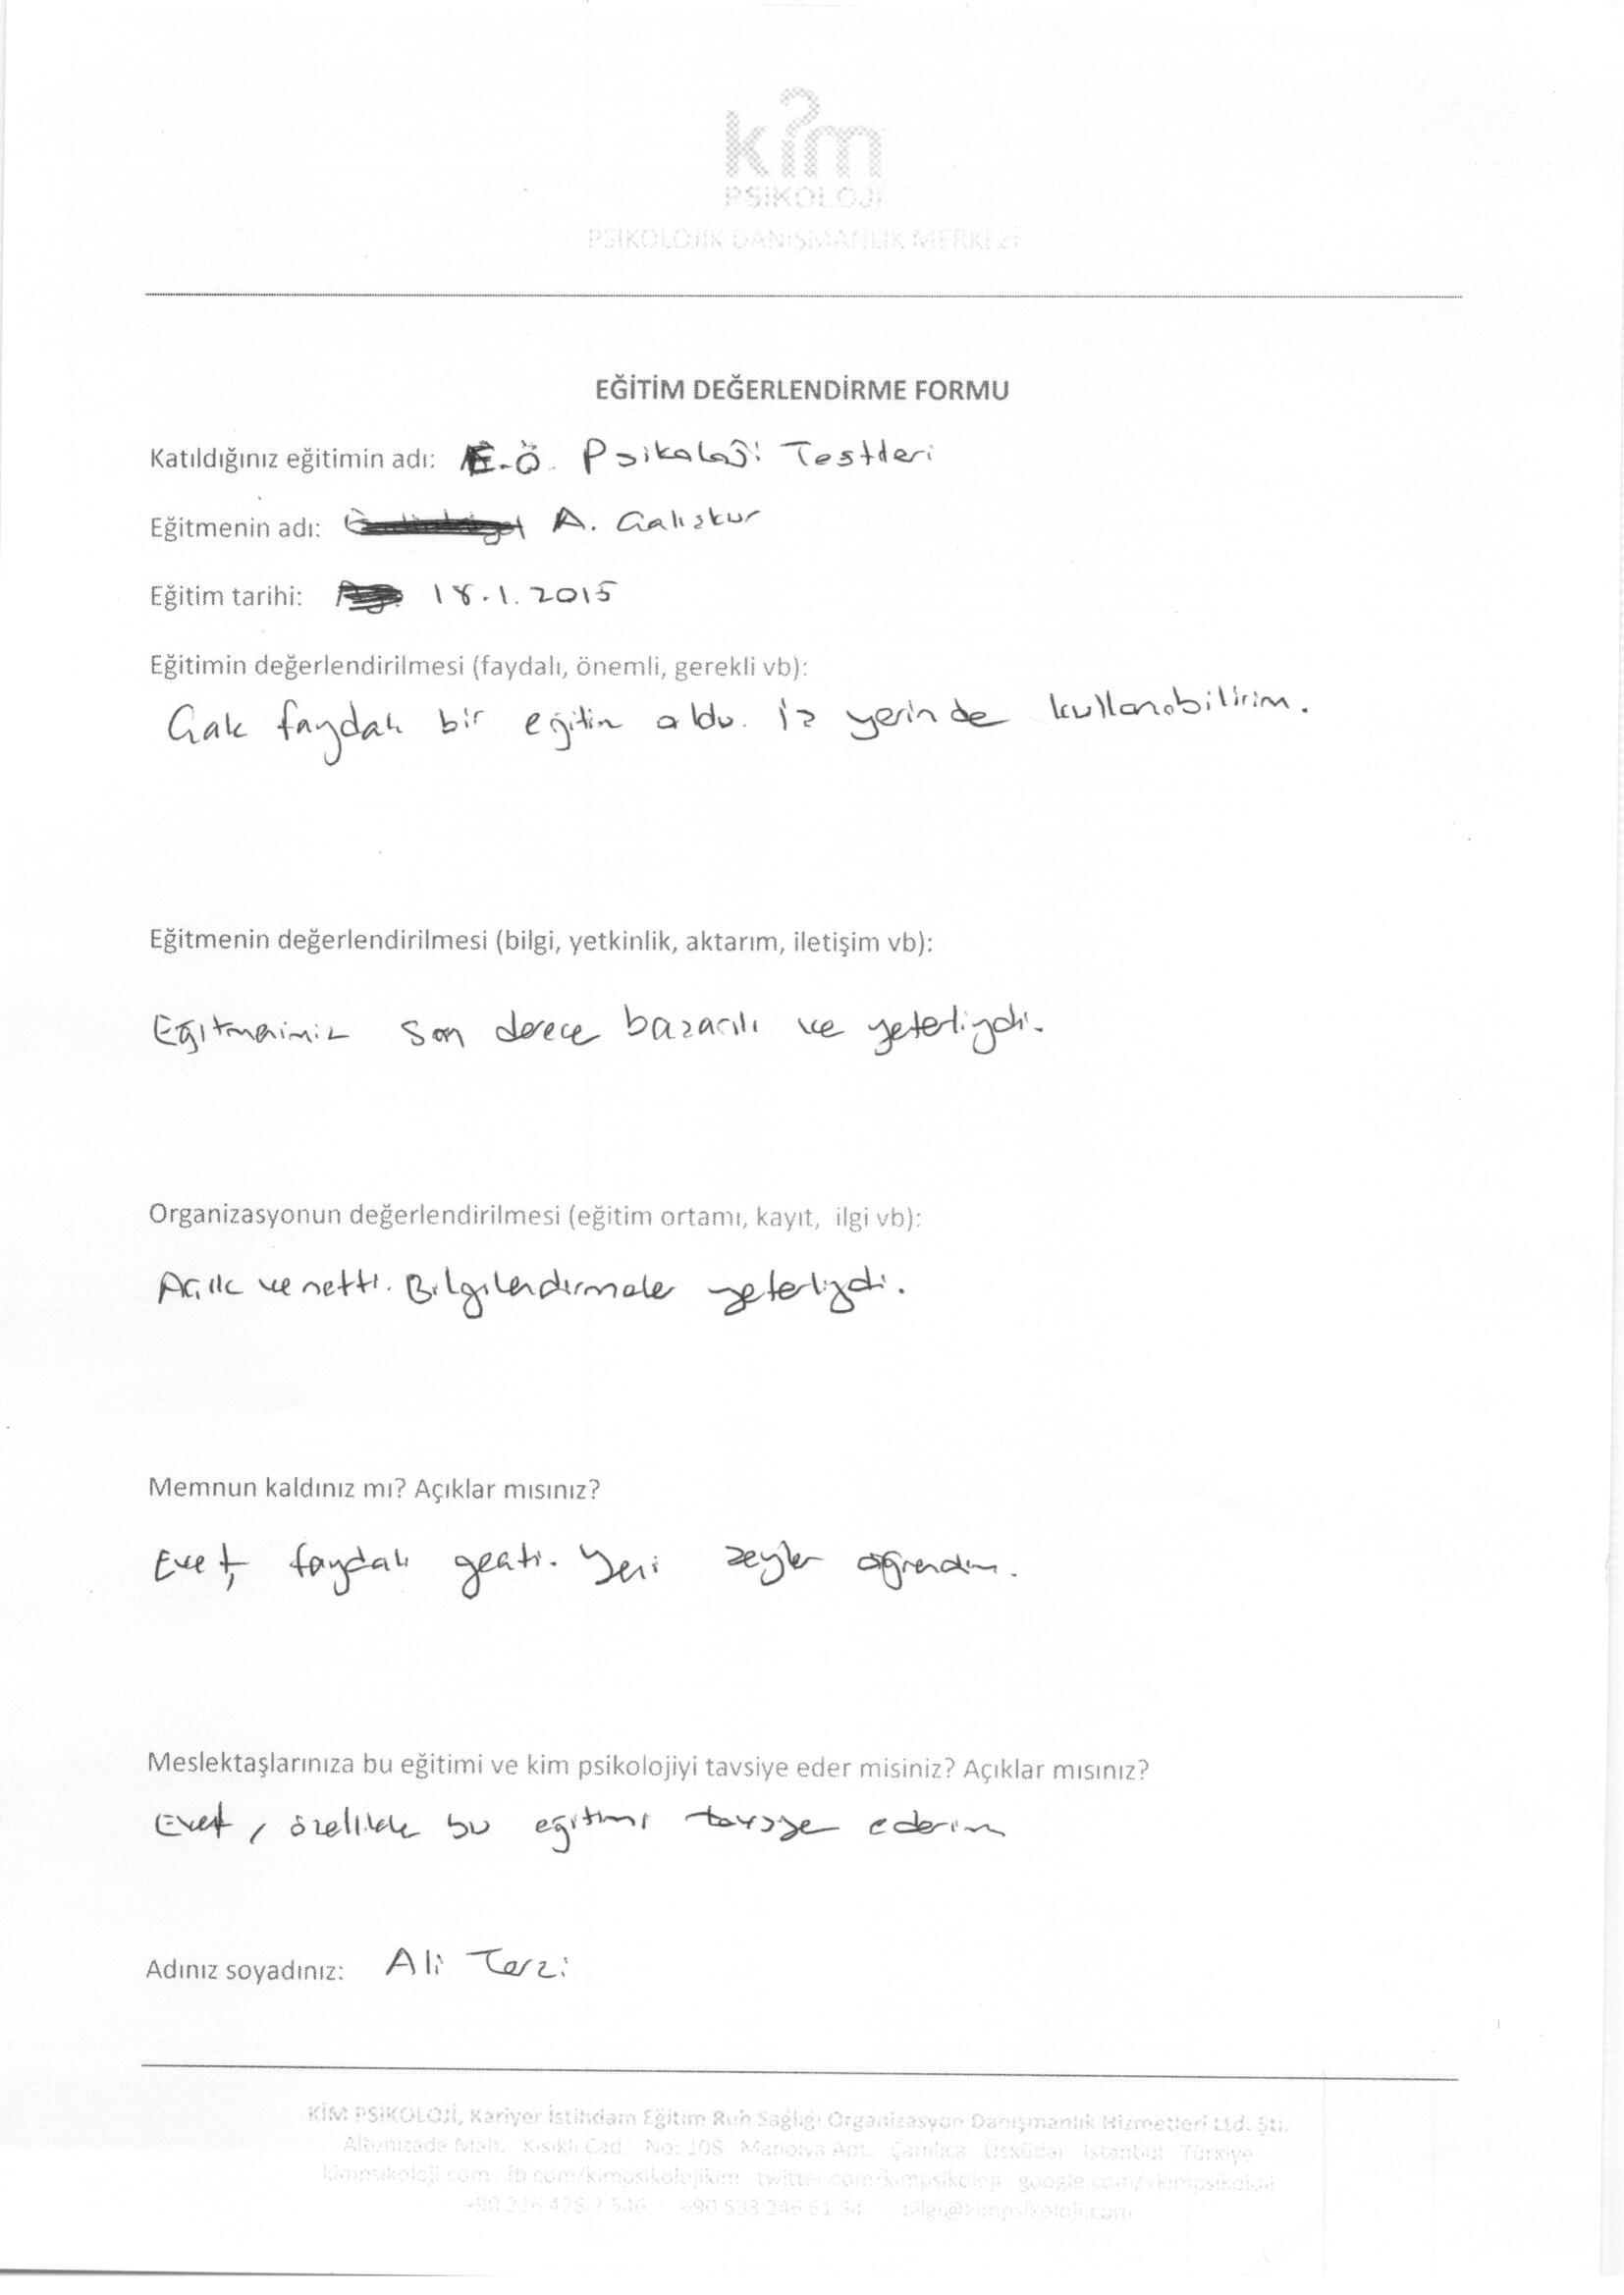 kim
PSİKOLOJİ
PSİKOLOJİK DANIŞMANLIK MERKEZİ
EĞİTİM DEĞERLENDİRME FORMU
Katıldığınız eğitimin adı: E.Ö. Psikoloji Testleri
Eğitmenin adı: A. Çalışkur
Eğitim tarihi: 18.1.2015
Eğitimin değerlendirilmesi (faydalı, önemli, gerekli vb):
Çok faydalı bir eğitim oldu. İş yerinde kullanabilirim.
Eğitmenin değerlendirilmesi (bilgi, yetkinlik, aktarım, iletişim vb):
Eğitmenimiz son derece başarılı ve yeterliydi.
Organizasyonun değerlendirilmesi (eğitim ortamı, kayıt, ilgi vb):
Açık ve netti. Bilgilendirmeler yeterliydi.
Memnun kaldınız mı? Açıklar mısınız?
Evet, faydalı geçti. Yeni şeyler öğrendim.
Meslektaşlarınıza bu eğitimi ve kim psikolojiyi tavsiye eder misiniz? Açıklar mısınız?
Evet, özellikle bu eğitimi tavsiye ederim
Adınız soyadınız: Ali Terzi
KİM PSİKOLOJİ, Kariyer İstihdam Eğitim Ruh Sağlığı Organizasyon Danışmanlık Hizmetleri Ltd. Şti.
Altunizade Mah. Kısıklı Cad. No: 108 Manolya Apt. Çamlıca Üsküdar İstanbul Türkiye
kimpsikoloji.com fb.com/kimpsikolojikim twitter.com/kimpsikoloji google.com/+kimpsikoloji
bilgi@kimpsikoloji.com